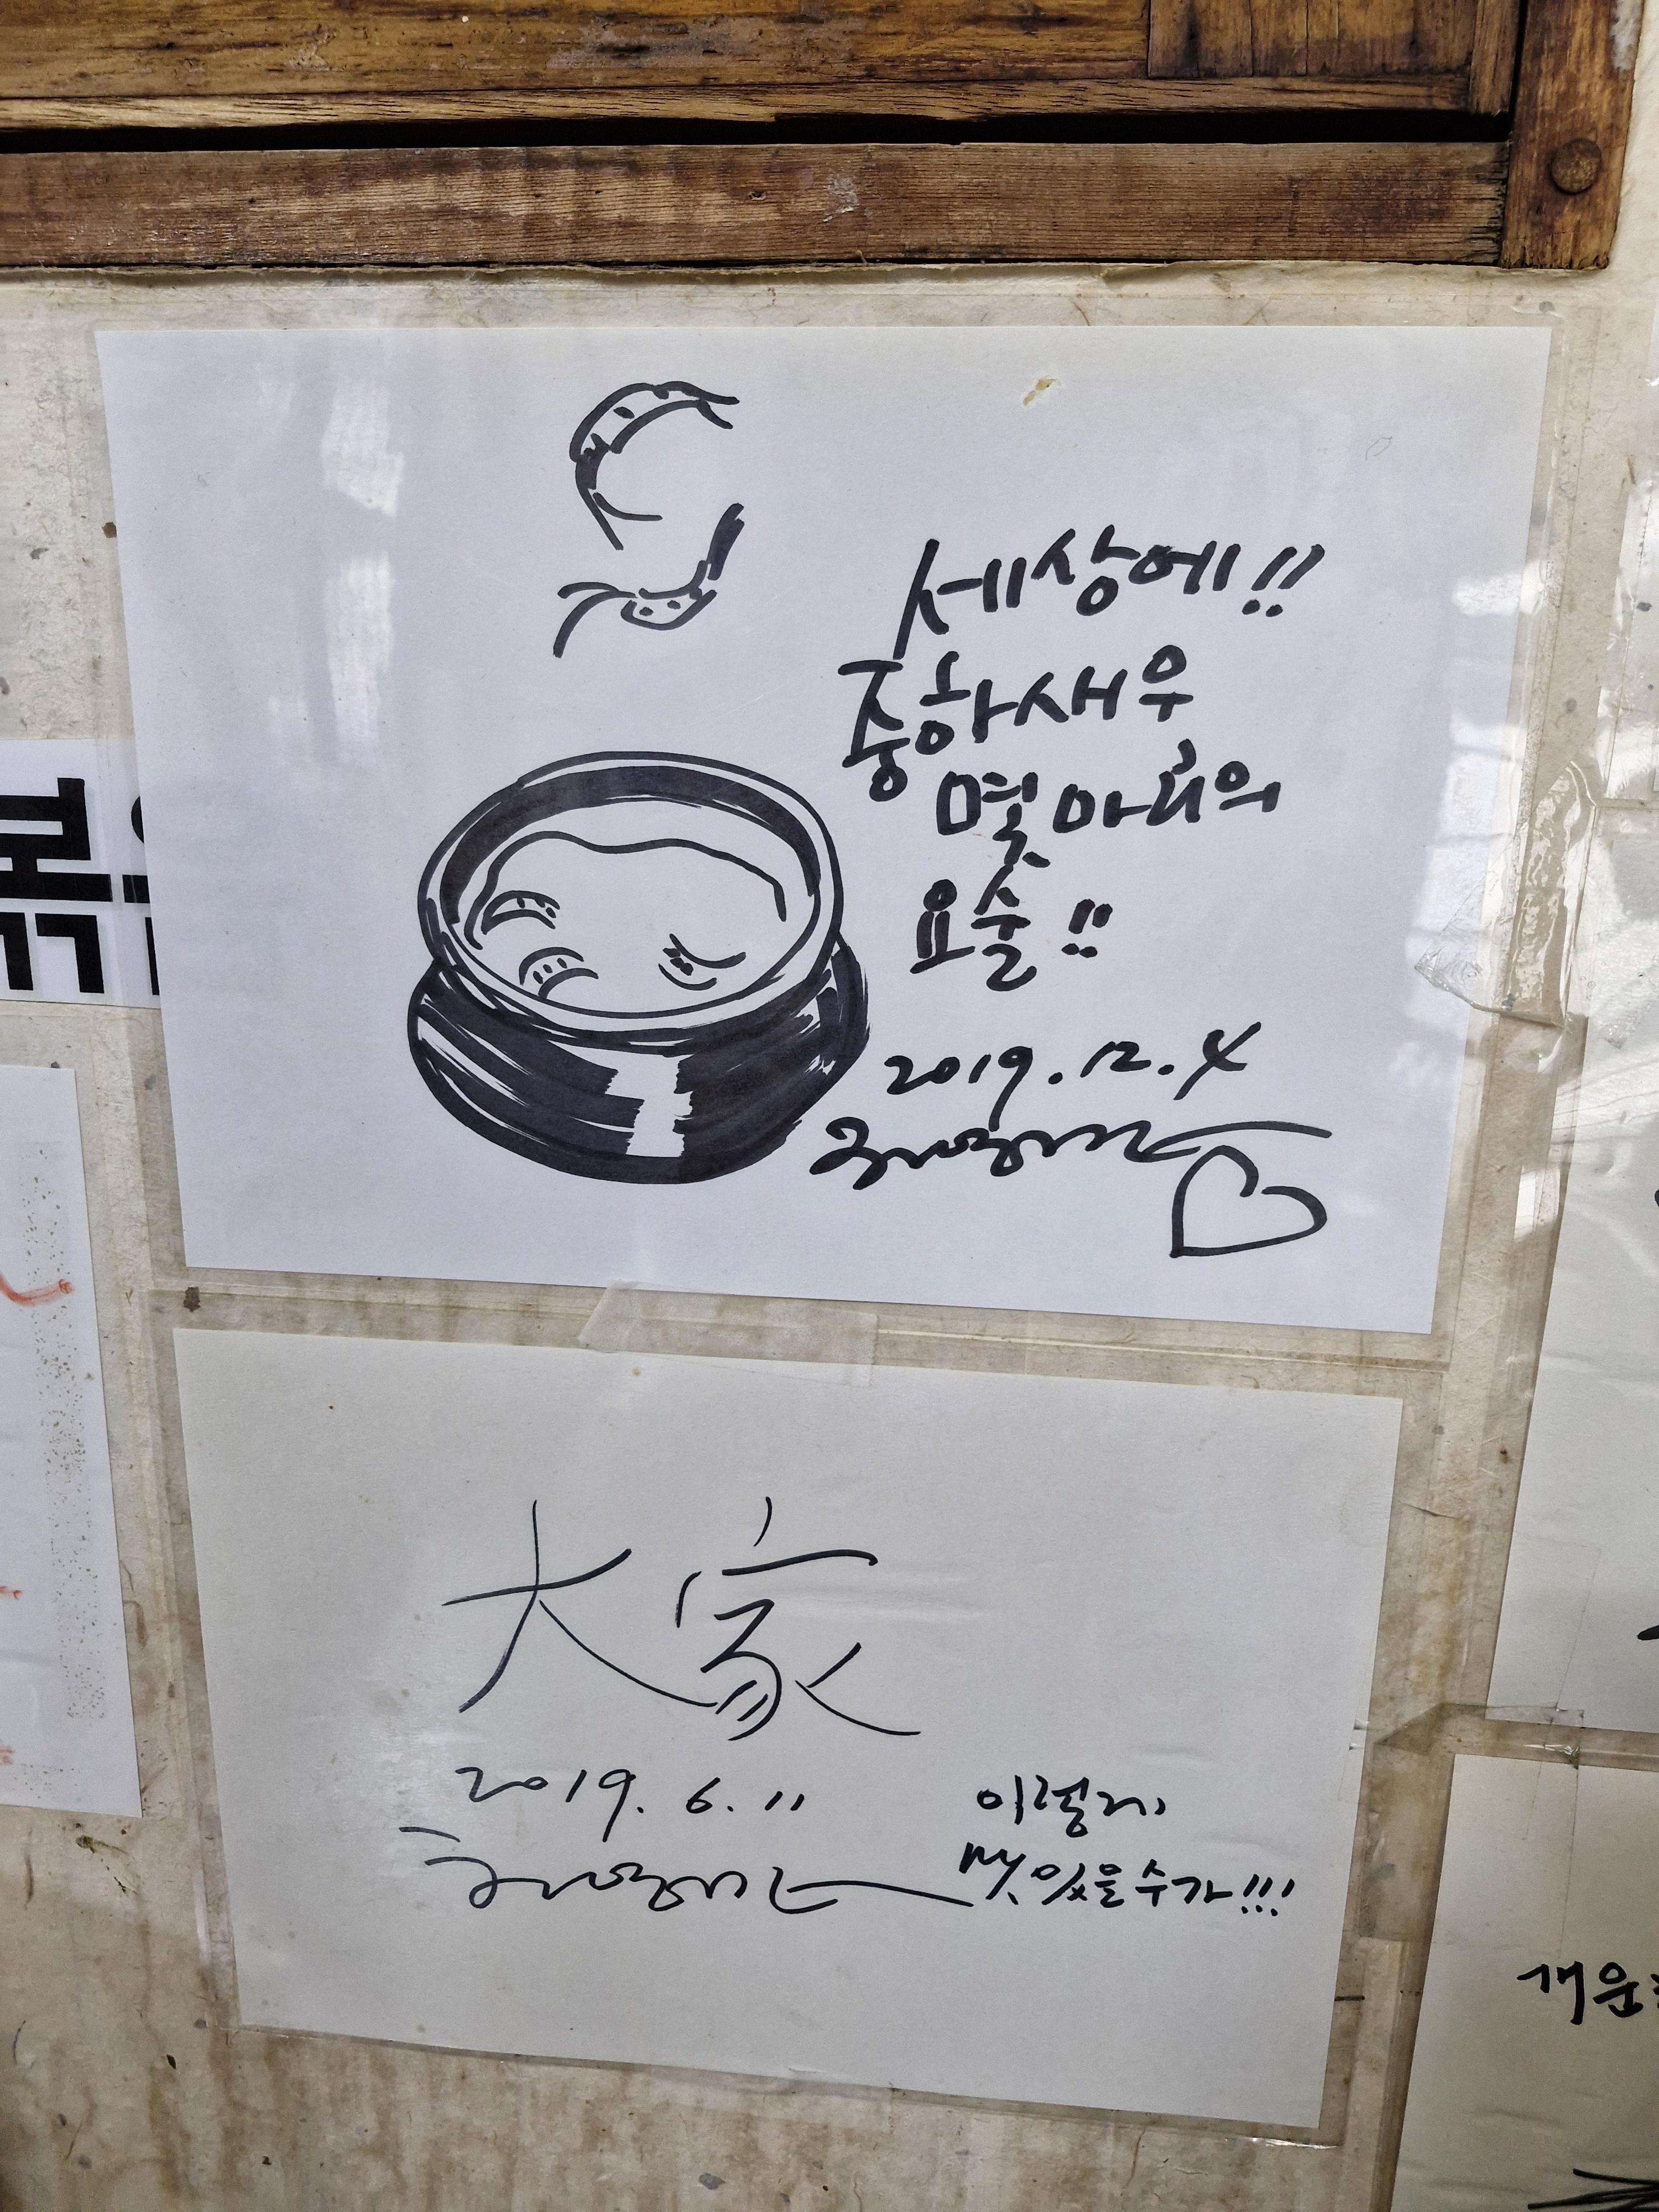 세상에!!
중하새우
몇 마리의
요술!!
2019.12.4
大家
2019. 6. 11
이렇게
맛있을 수가!!!
개운